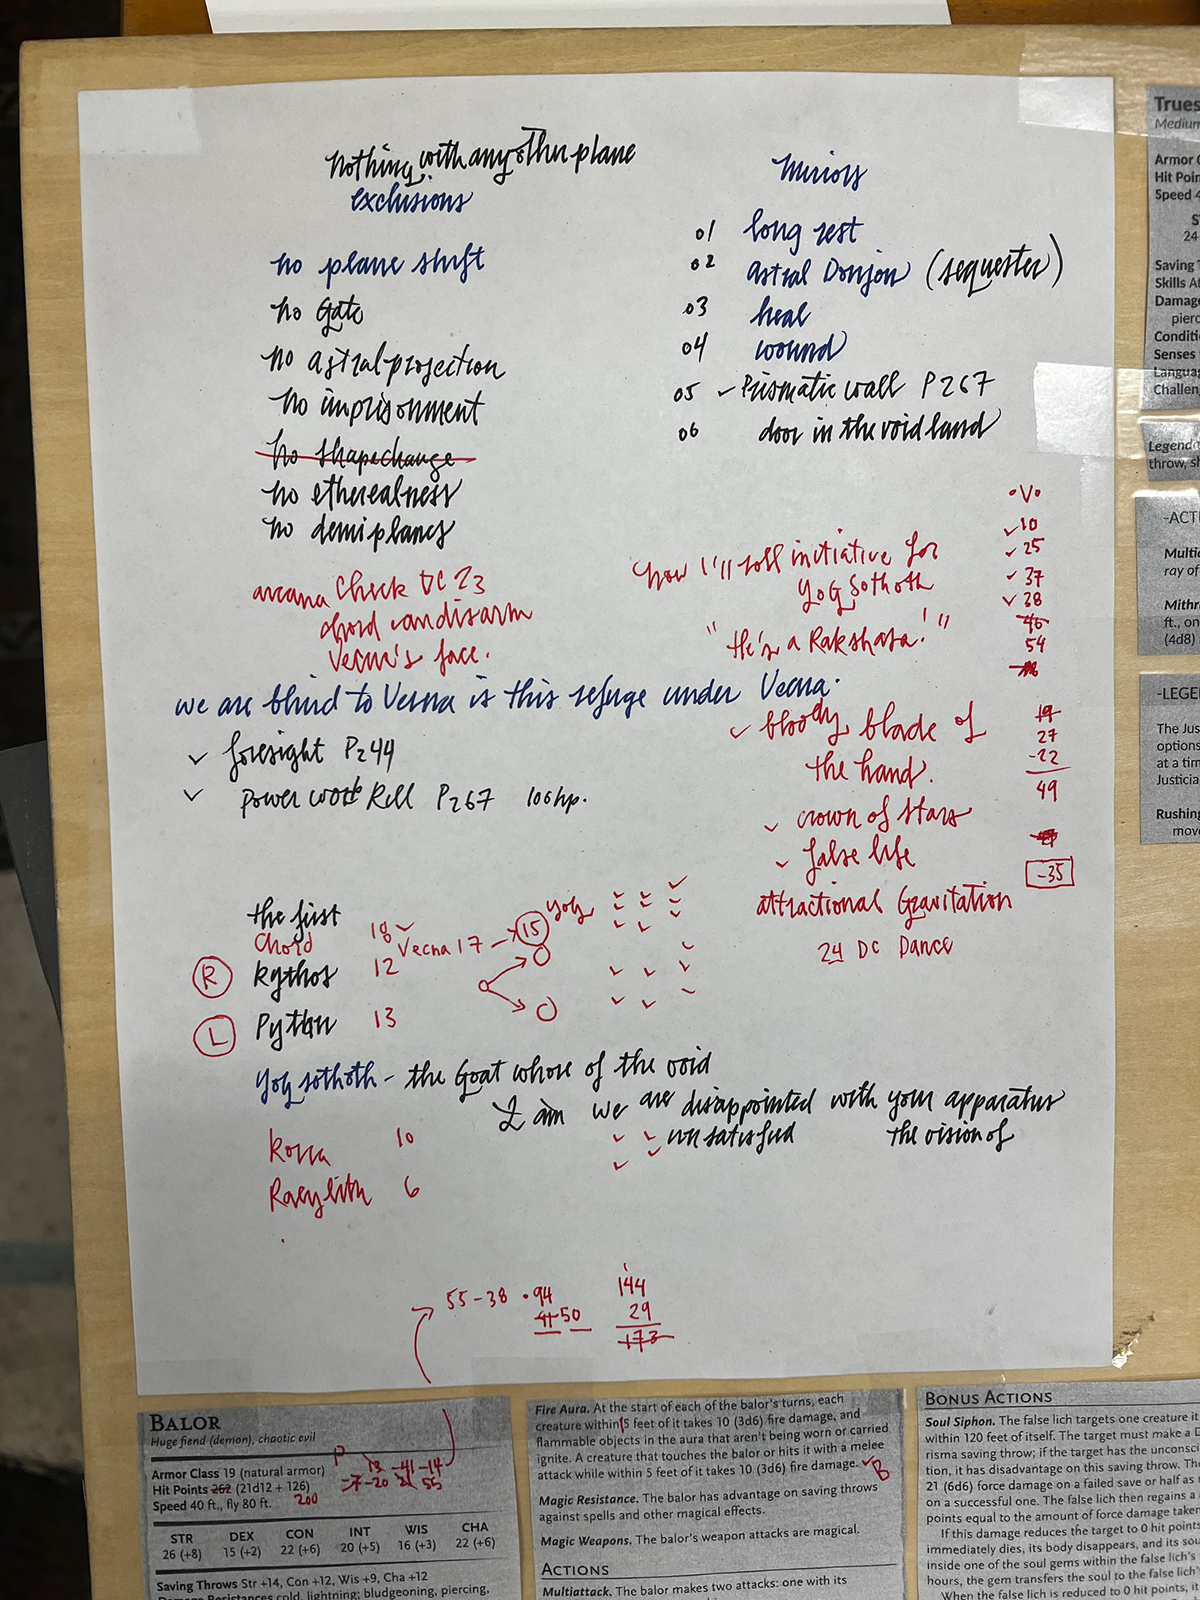 nothing with any other plane
exclusions
no plane shift
no Gate
no astral projection
no imprisonment
no shapechange
no etherealness
no demiplanes
arcana check DC 23
chord can disarm
Vecna's face.
mirrors
01 long rest
02 astral Donjon (sequester)
03 heal
04 wound
05 Prismatic wall P267
06 door in the void land
now I'll roll initiative for
YOG Sothoth
"He's a Rakshasa!"
•V•
10
25
37
38
46
54
we are blind to Vecna is this refuge under Vecna.
foresight P244
power word Kill P267 100hp.
bloody blade of
the hand.
crown of stars
false life
attractional Gravitation
24 DC Dance
19
27
-22
49
-35
the first
Chord 18
Vecna 17
15 yog
R Kythos 12
L Python 13
Yog sothoth - the Goat whore of the void
I am we are disappointed with your apparatus
unsatisfied the vision of
Korra 10
Raeylith 6
55-38 •94
41 50
144
29
173
BALOR
Huge fiend (demon), chaotic evil
P
13 -41 -14
-7 -20 21 55
Armor Class 19 (natural armor)
Hit Points 262 (21d12 + 126)
200
Speed 40 ft., fly 80 ft.
STR DEX CON INT WIS CHA
26 (+8) 15 (+2) 22 (+6) 20 (+5) 16 (+3) 22 (+6)
Saving Throws Str +14, Con +12, Wis +9, Cha +12
Damage Resistances cold, lightning; bludgeoning, piercing,
Fire Aura. At the start of each of the balor's turns, each
creature within 5 feet of it takes 10 (3d6) fire damage, and
flammable objects in the aura that aren't being worn or carried
ignite. A creature that touches the balor or hits it with a melee
attack while within 5 feet of it takes 10 (3d6) fire damage.
B
Magic Resistance. The balor has advantage on saving throws
against spells and other magical effects.
Magic Weapons. The balor's weapon attacks are magical.
ACTIONS
Multiattack. The balor makes two attacks: one with its
BONUS ACTIONS
Soul Siphon. The false lich targets one creature it
within 120 feet of itself. The target must make a D
risma saving throw; if the target has the unconsci
tion, it has disadvantage on this saving throw. The
21 (6d6) force damage on a failed save or half as
on a successful one. The false lich then regains a
points equal to the amount of force damage taken
If this damage reduces the target to 0 hit points
immediately dies, its body disappears, and its sou
inside one of the soul gems within the false lich's
hours, the gem transfers the soul to the false lich'
When the false lich is reduced to 0 hit points, it
Trues
Medium
Armor C
Hit Poin
Speed 4
S
24
Saving T
Skills At
Damage
pierc
Conditi
Senses
Languag
Challen
Legenda
throw, s
-ACT
Multi
ray of
Mithr
ft., on
(4d8)
-LEGE
The Jus
options
at a tim
Justicia
Rushing
move